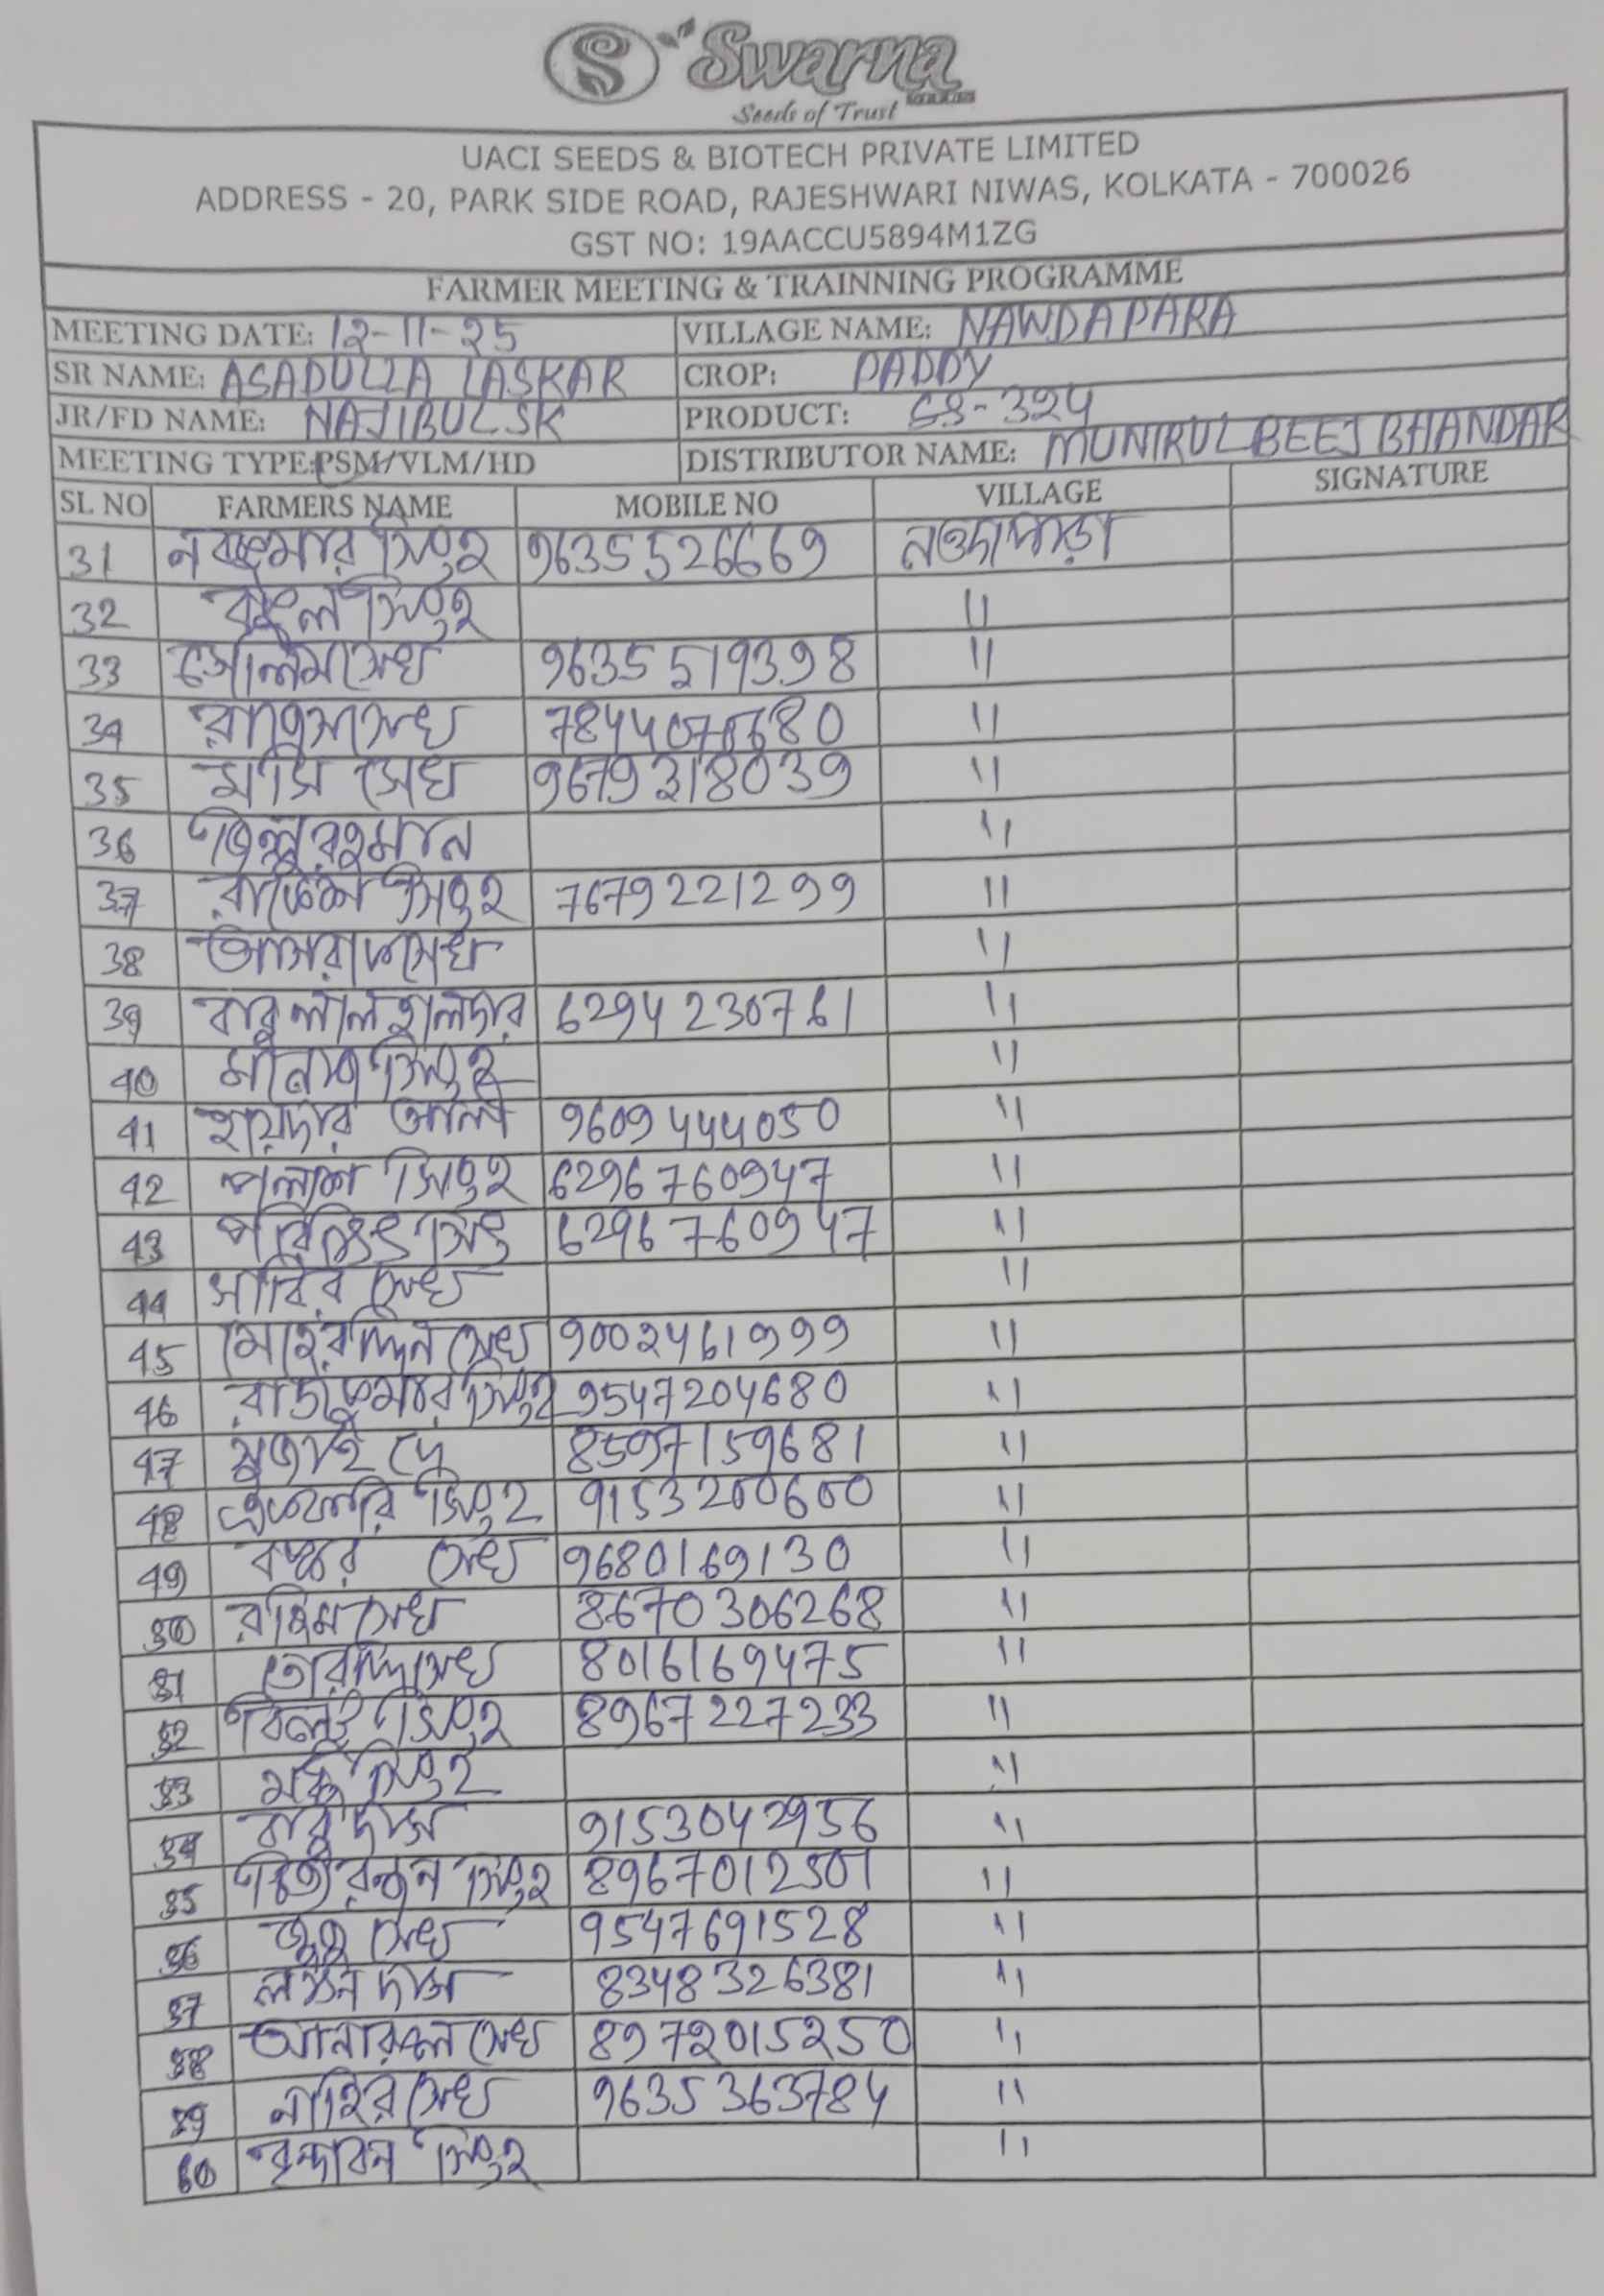 Swarna
Seeds of Trust
UACI SEEDS & BIOTECH PRIVATE LIMITED
ADDRESS - 20, PARK SIDE ROAD, RAJESHWARI NIWAS, KOLKATA - 700026
GST NO: 19AACCU5894M1ZG
FARMER MEETING & TRAINNING PROGRAMME
MEETING DATE: 12-11-25 VILLAGE NAME: NAWDAPARA
SR NAME: ASADULLA LASKAR CROP: PADDY
JR/FD NAME: NAJIBUL SK PRODUCT: SS-324
MEETING TYPE:PSM/VLM/HD DISTRIBUTOR NAME: MUNIRUL BEEJ BHANDAR
SL NO FARMERS NAME MOBILE NO VILLAGE SIGNATURE
31 নবকুমার সিংহ 9635526669 নওদাপাড়া
32 সিংহ 11
33 সেলিম সেখ 9635519398 11
34 সেখ 11
35 মাসি সেখ 9679318039 11
36 জিল্লুর রহমান 11
37 রাকেশ সিংহ 7679221299 11
38 আসরাফ সেখ 11
39 বাবুলাল হালদার 6294230761 11
40 মনোজ সিংহ 11
41 হায়দার আলি 9609444050 11
42 পলাশ সিংহ 6296760947 11
43 সিংহ 6296760947 11
44 সাবির সেখ 11
45 সেখ 9002461999 11
46 রাজকুমার সিংহ 9547204680 11
47 দে 8597159681 11
48 সিংহ 9153200600 11
49 সেখ 9680169130 11
50 রহিম সেখ 8670306268 11
51 সেখ 8016169475 11
52 সিংহ 8967227233 11
53 সিংহ 11
54 বাবু দাস 9153042956 11
55 চিত্তরঞ্জন সিংহ 8967012501 11
56 সেখ 9547691528 11
57 দাস 8348326381 11
58 আনারুল সেখ 8972015250 11
59 সেখ 9635363784 11
60 বৃন্দাবন সিংহ 11